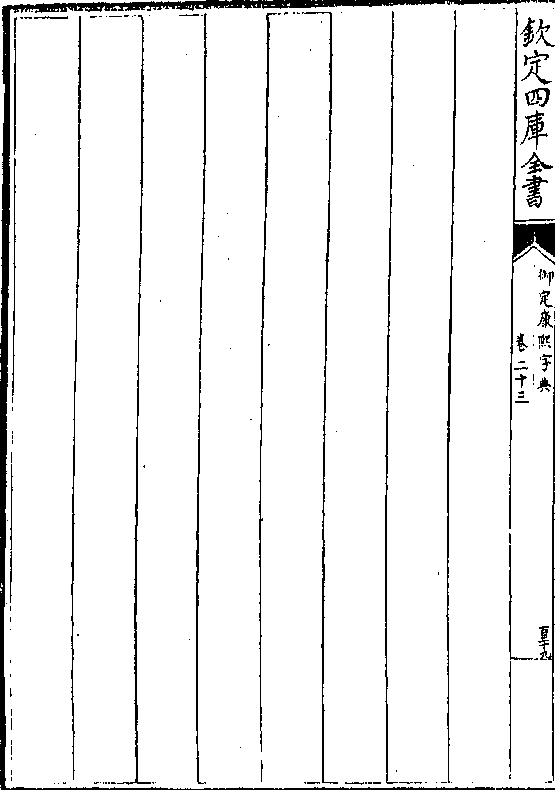 欽定四庫全書
御定康熙字典
卷二十三